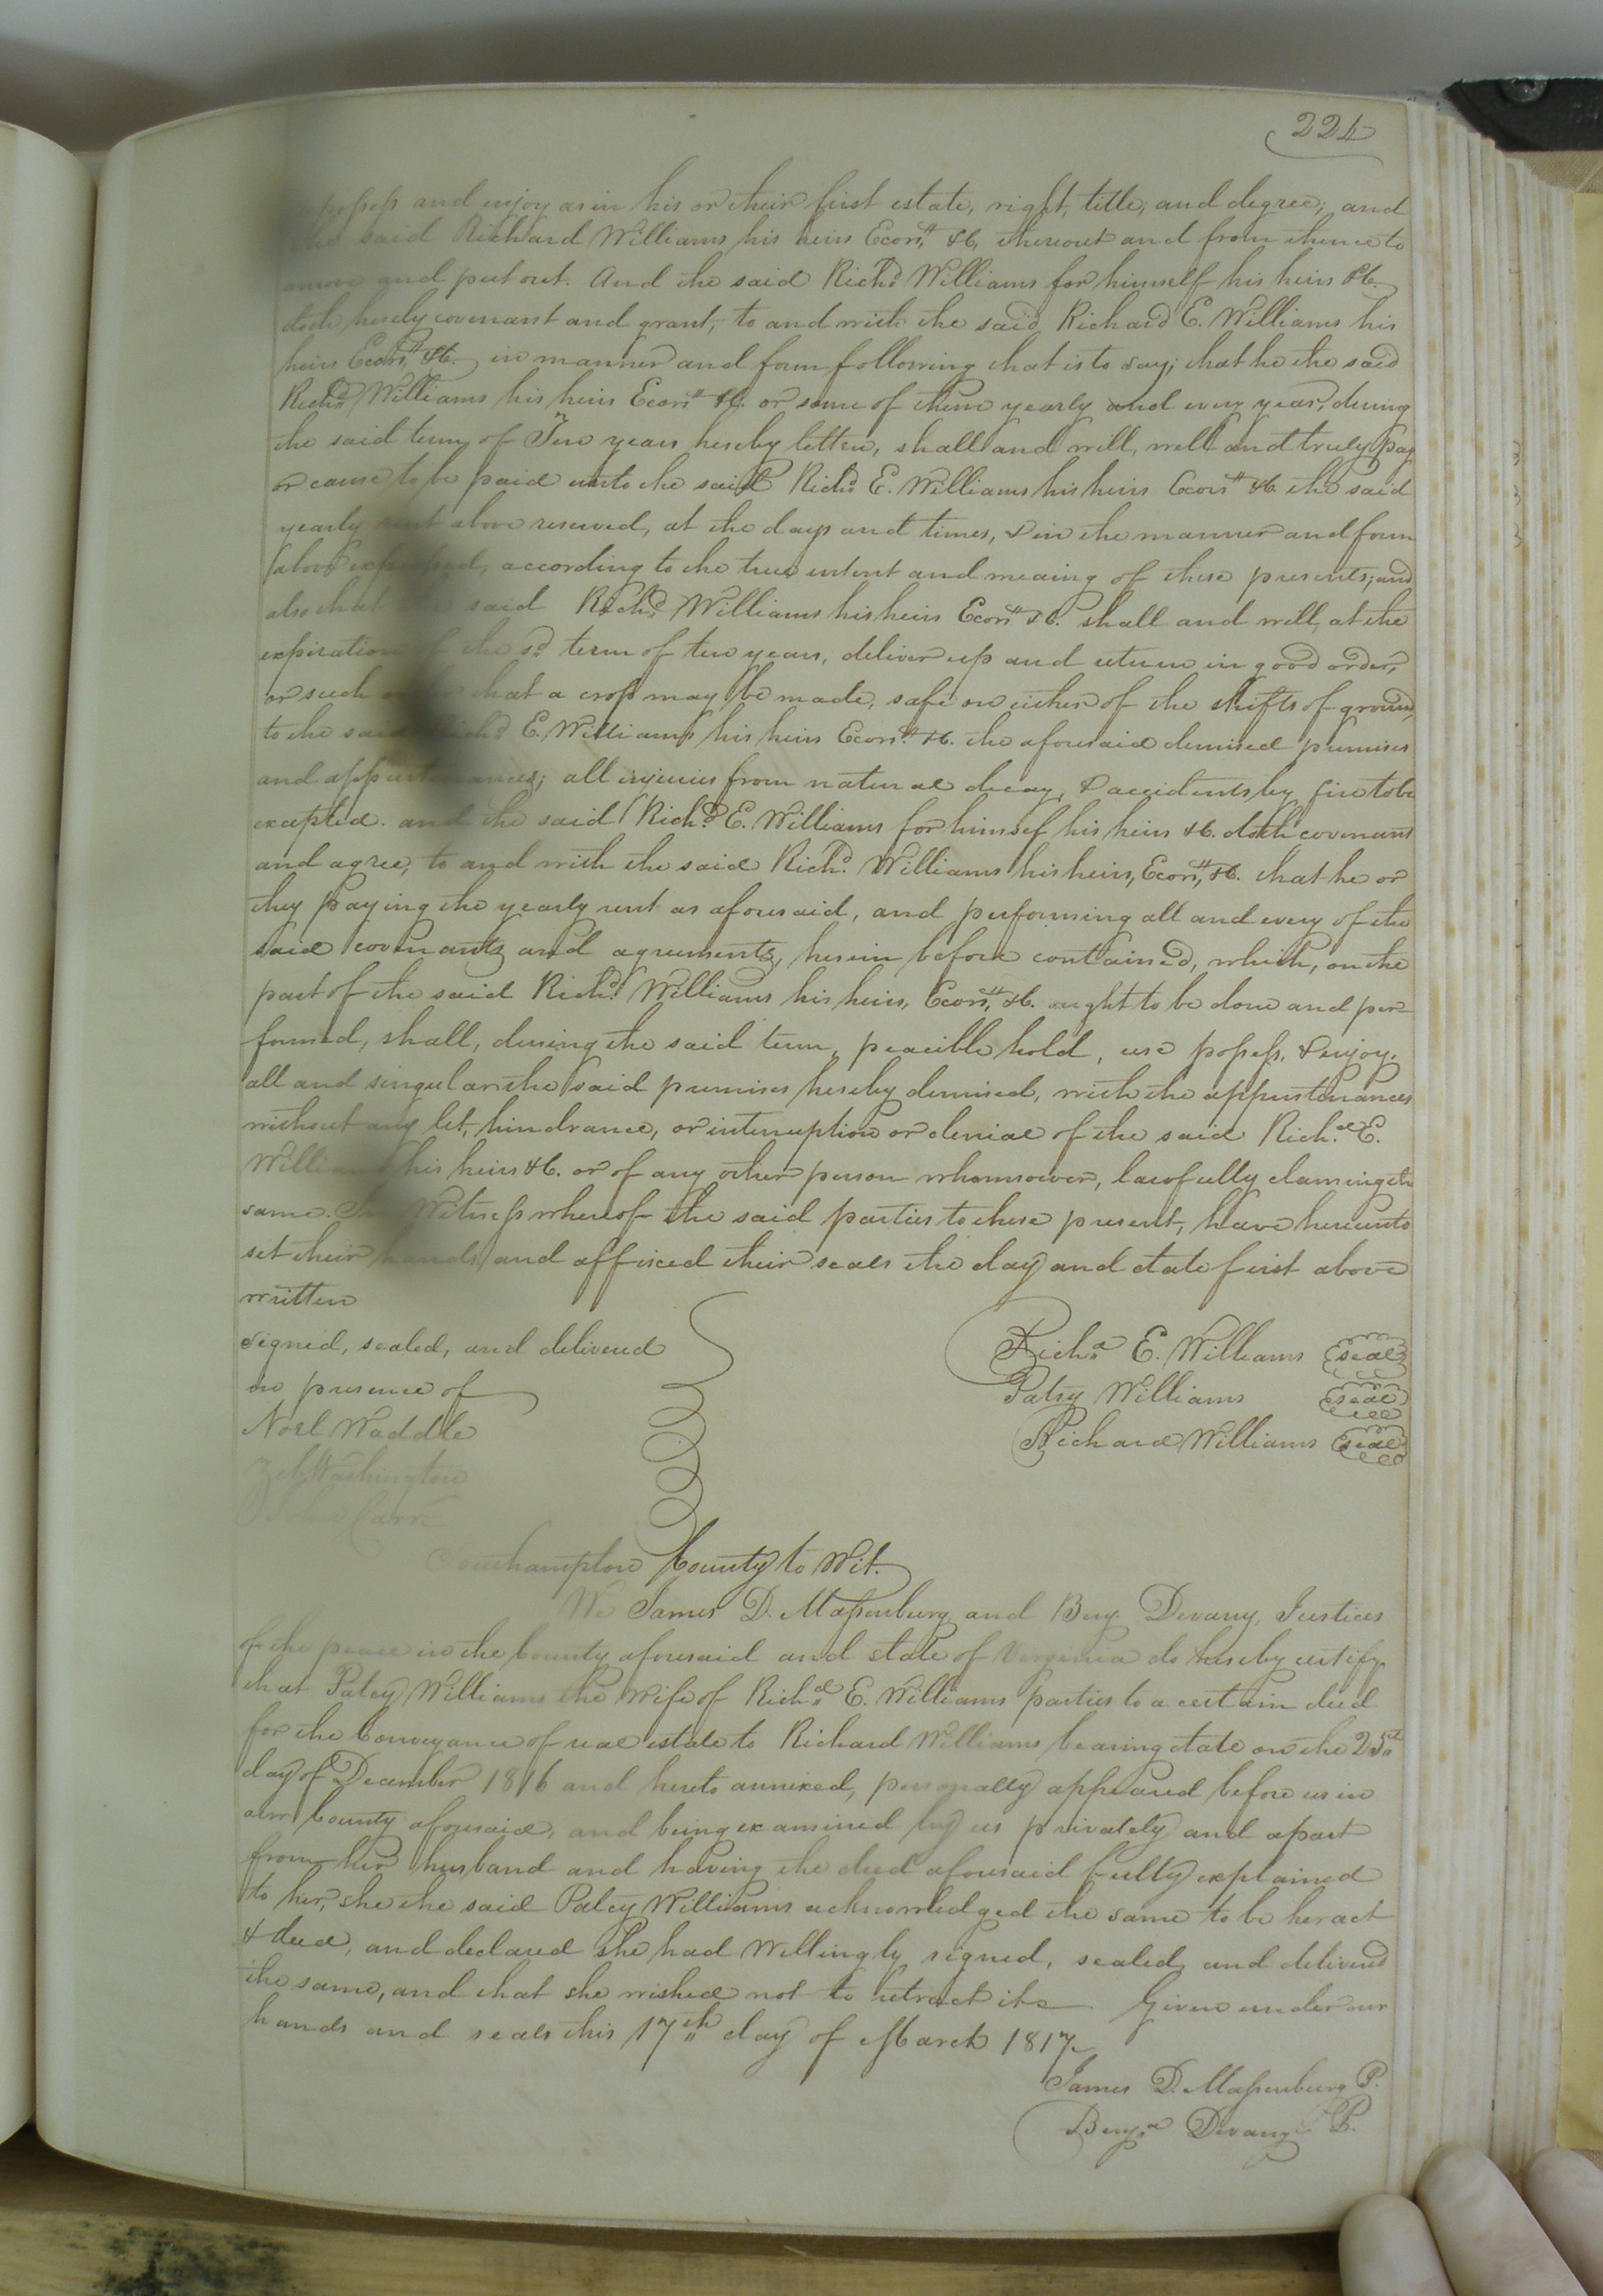 224
possess and enjoy as in his or their first estate, right, title, and degree; and
the said Richard Williams his heirs Ecors. &c, thereout and from thence to
amove and put out. And the said Richd. Williams for himself his heirs &c.
doth hereby covenant and grant, to and with the said Richard E. Williams his
heirs Ecors. &c. in manner and form following that is to say; that he the said
Richd. Williams his heirs Ecors. &c. or some of them yearly and every year, during
the said term of Ten years hereby letten, shall and will, well and truly pay
or cause to be paid unto the said Richd. E. Williams his heirs Ecors. &c. the said
yearly rent above reserved, at the days and times, & in the manner and form
above expressed, according to the true intent and meaing of these presents; and
also that the said Richd. Williams his heirs Ecors. &c. shall and will, at the
expiration of the sd. term of ten years, deliver up and return in good order,
or such order that a crop may be made, safe on either of the shifts of ground,
to the said Richd. E. Williams his heirs Ecors. &c. the aforesaid demised premises
and appurtenances; all injuries from natural decay, & accidents by fire to be
excepted. and the said Richd. E. Williams for himsef his heirs &c. doth covenant
and agree, to and with the said Richd. Williams his heirs, Ecors, &c. that he or
they paying the yearly rent as aforesaid, and performing all and every of the
said covenants and agreements, herein before contained, which, on the
part of the said Richd. Williams his heirs, Ecors, &c. ought to be done and per-
formed, shall, during the said term, peacible hold, use possess, & enjoy.
all and singular the said premises hereby demised, with the appurtenances
without any let, hindrance, or interruption or denial of the said Richd. E.
Williams his heirs &c. or of any other person whomsoever, lawfully claming the
same. In Witness whereof the said parties to these present, have hereunto
set their hands and affixed their seals the day and date first above
written
signed, sealed, and delivered
in presence of
Noel Waddle
Washington
John Carr
Richd. E. Williams seal
Patsy Williams seal
Richard Williams seal
Southampton County to Wit.
We James D. Massenburg and Benj. Devany, Justices
of the peace in the County aforesaid and state of Virginia do hereby certify
that Patsy Williams the Wife of Richd. E. Williams parties to a certain deed
for the Conveyance of real estate to Richard Williams bearing date on the 25th
day of December 1816 and hereto annexed, personally appeared before us in
our County aforesaid, and being examined by us privately and apart
from her husband and having the deed aforesaid fully explained
to her, she the said Patsy Williams acknowledged the same to be her act
& deed, and declared she had Willingly signed, sealed, and delivered
the same, and that she wished not to retract it. Given under our
hands and seals this 17th day of March 1817.
James D. Massenburg P.
Benja. Devany P.